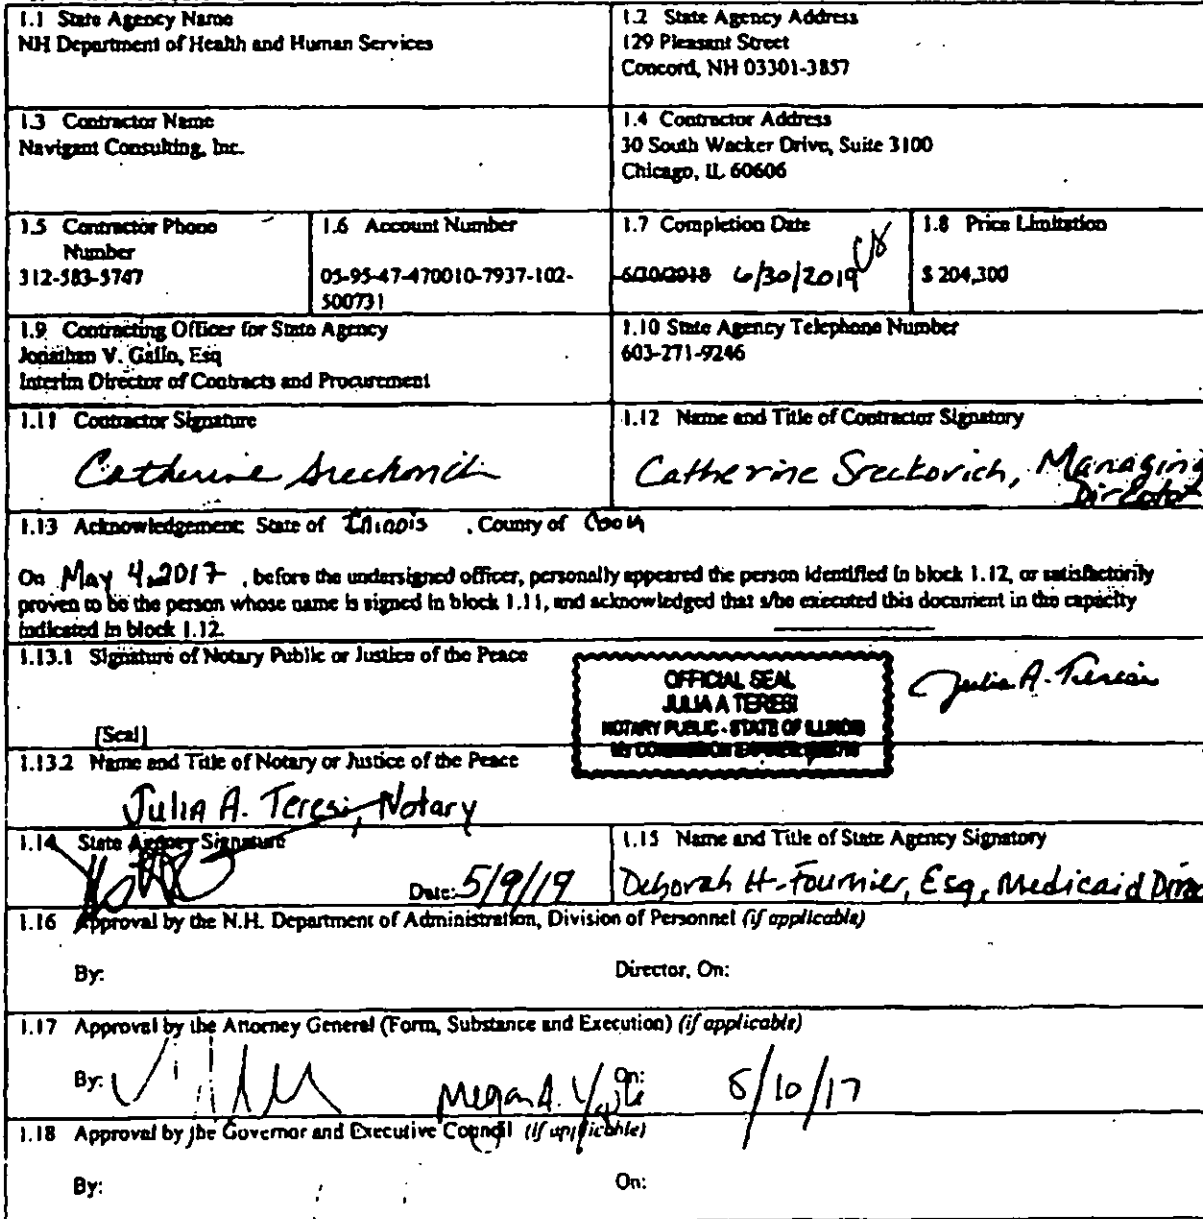 1.1 State Agency Name
NH Department of Health and Human Services
1.2 State Agency Address
129 Pleasant Street
Concord, NH 03301-3857
1.3 Contractor Name
Navigant Consulting, Inc.
1.4 Contractor Address
30 South Wacker Drive, Suite 3100
Chicago, IL 60606
1.5 Contractor Phone
Number
312-583-5747
1.6 Account Number
05-95-47-470010-7937-102-
500731
1.7 Completion Date
6/30/2018 6/30/2019 CS
1.8 Price Limitation
$ 204,300
1.9 Contracting Officer for State Agency
Jonathan V. Gallo, Esq
Interim Director of Contracts and Procurement
1.10 State Agency Telephone Number
603-271-9246
1.11 Contractor Signature
Catherine Sreckovich
1.12 Name and Title of Contractor Signatory
Catherine Sreckovich, Managing
Director
1.13 Acknowledgement: State of Illinois , County of Cook
On May 4, 2017 , before the undersigned officer, personally appeared the person identified in block 1.12, or satisfactorily
proven to be the person whose name is signed in block 1.11, and acknowledged that s/he executed this document in the capacity
indicated in block 1.12.
1.13.1 Signature of Notary Public or Justice of the Peace
[Seal]
OFFICIAL SEAL
JULIA A TERESI
NOTARY PUBLIC - STATE OF ILLINOIS
MY COMMISSION EXPIRES
Julia A. Teresi
1.13.2 Name and Title of Notary or Justice of the Peace
Julia A. Teresi, Notary
1.14 State Agency Signature
Date: 5/9/19
1.15 Name and Title of State Agency Signatory
Deborah H. Fournier, Esq, Medicaid Direc
1.16 Approval by the N.H. Department of Administration, Division of Personnel (if applicable)
By: Director, On:
1.17 Approval by the Attorney General (Form, Substance and Execution) (if applicable)
By: Megan A. On: 5/10/17
1.18 Approval by the Governor and Executive Council (if applicable)
By: On: